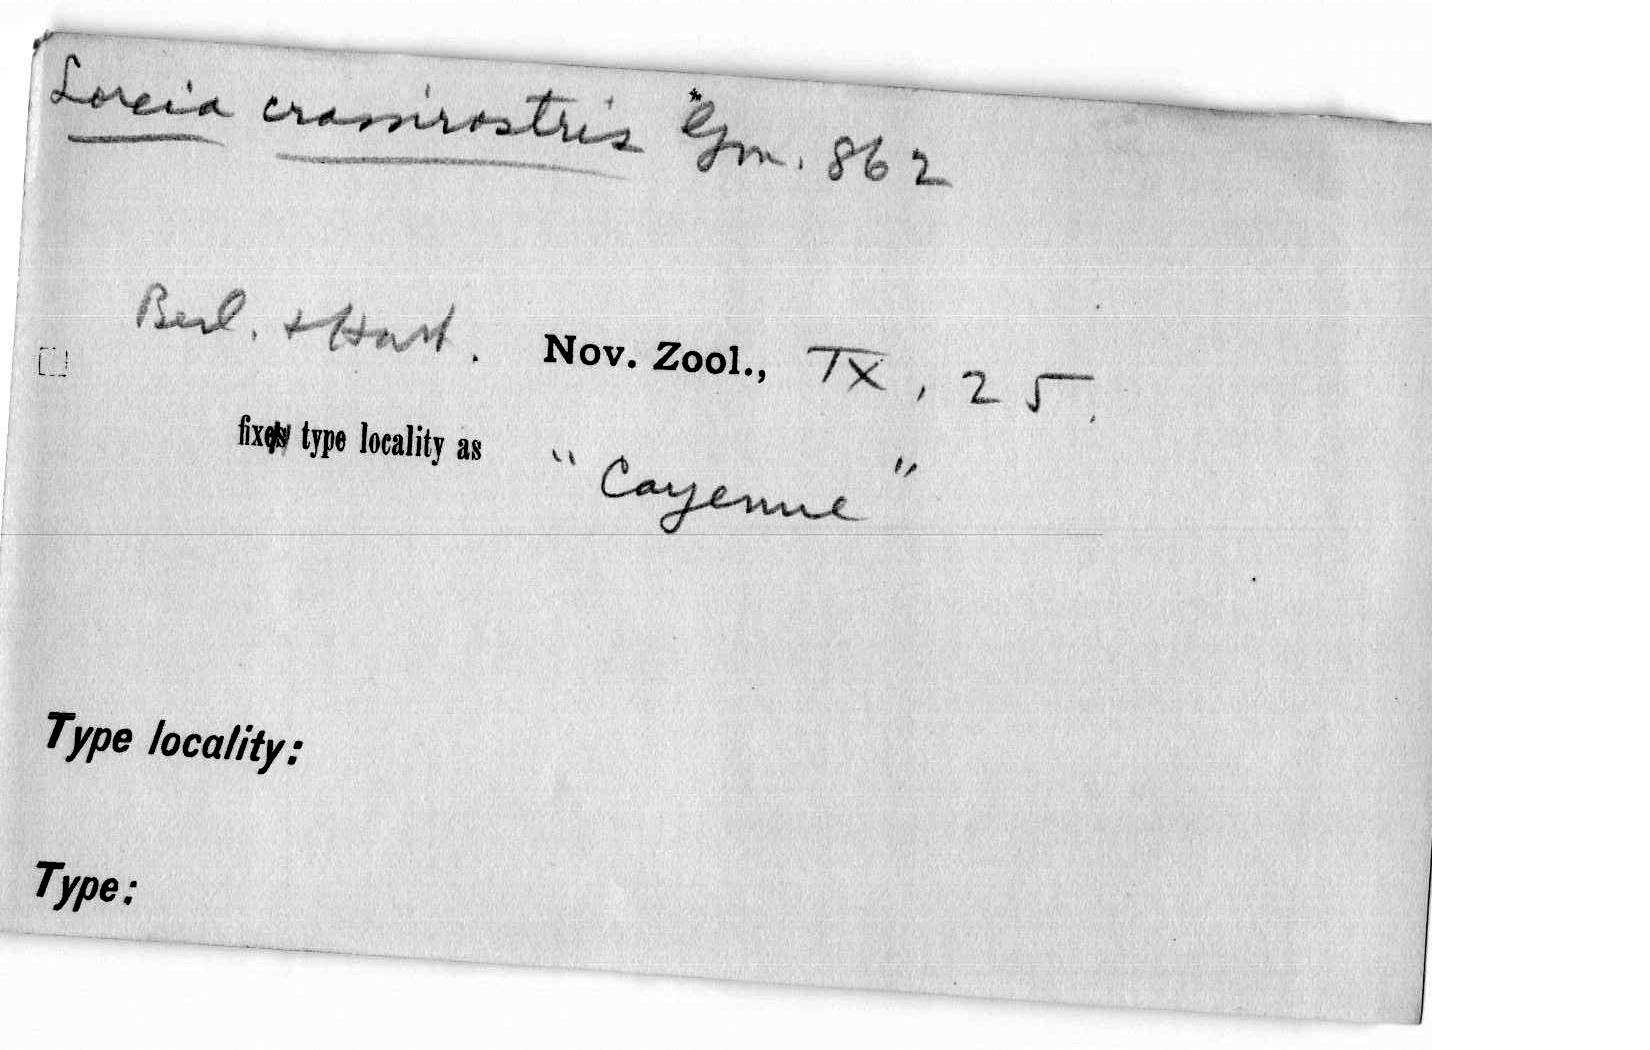 Loxia crassirostris Gm. 862
Berl. & Hart. Nov. Zool., IX, 25.
fixes type locality as "Cayenne"
Type locality:
Type: